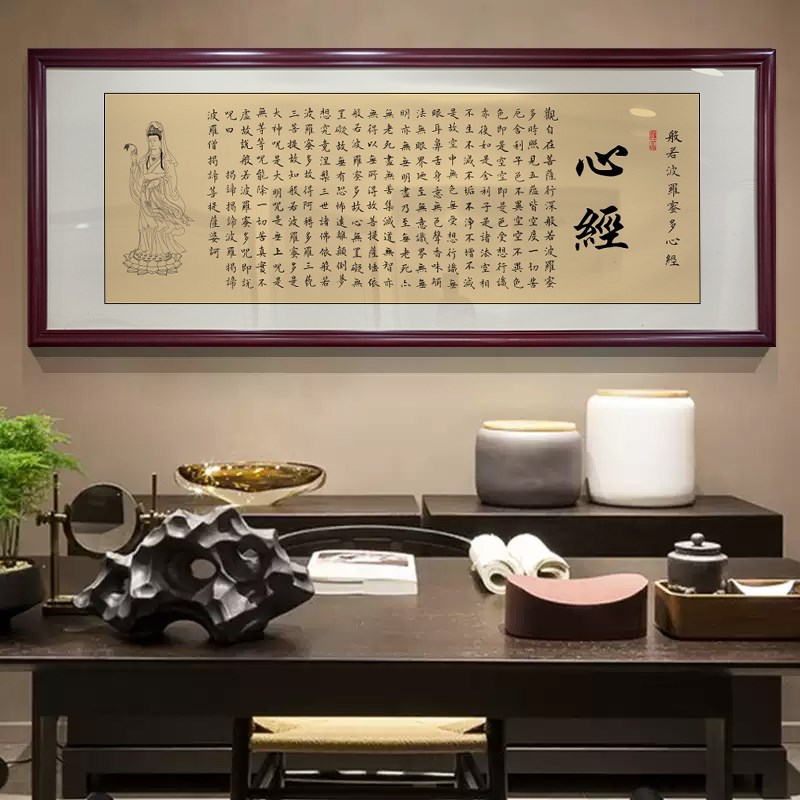 般若波羅蜜多心經
心經
觀自在菩薩行深般若波羅蜜
多時照見五蘊皆空度一切苦
厄舍利子色不異空空不異色
色即是空空即是色受想行識
亦復如是舍利子是諸法空相
不生不滅不垢不淨不增不減
是故空中無色無受想行識無
眼耳鼻舌身意無色聲香味觸
法無眼界乃至無意識界無無
明亦無無明盡乃至無老死亦
無老死盡無苦集滅道無智亦
無得以無所得故菩提薩埵依
般若波羅蜜多故心無罣礙無
罣礙故無有恐怖遠離顛倒夢
想究竟涅槃三世諸佛依般若
波羅蜜多故得阿耨多羅三藐
三菩提故知般若波羅蜜多是
大神呪是大明呪是無上呪是
無等等呪能除一切苦真實不
虛故說般若波羅蜜多呪即說
呪曰 揭諦揭諦波羅揭諦
波羅僧揭諦菩提薩婆訶